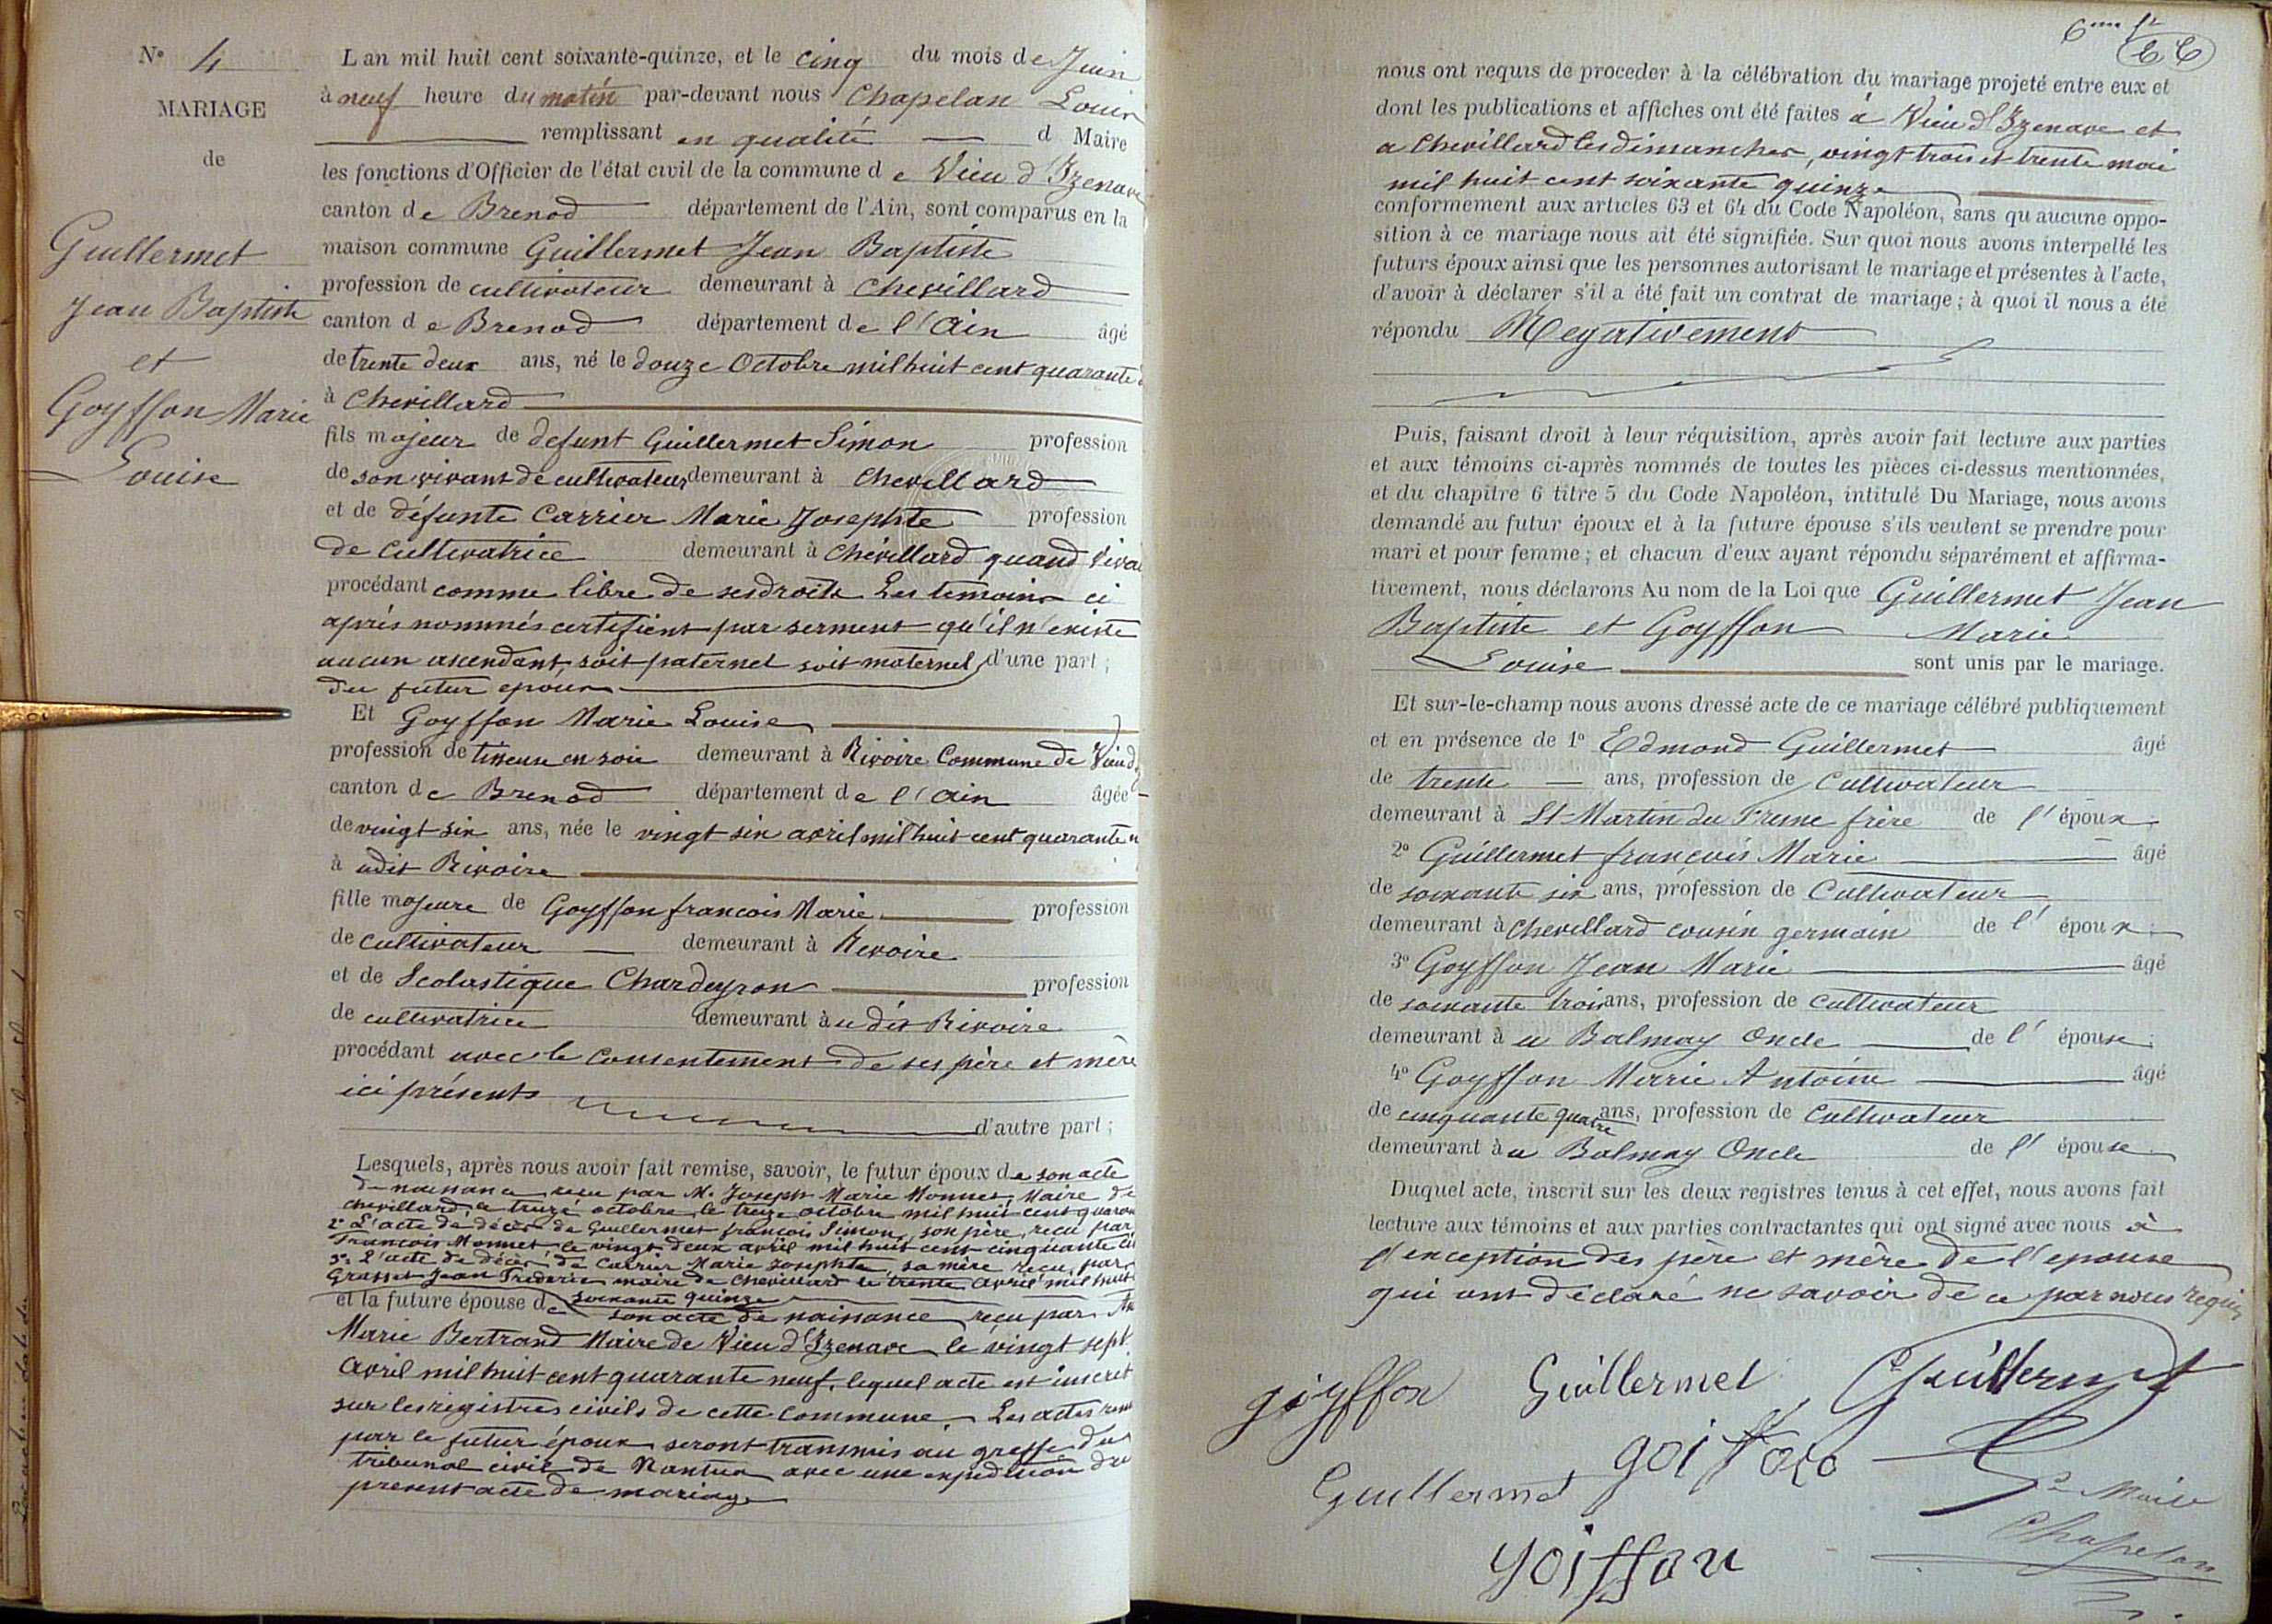 N° 4
MARIAGE
de
Guillermet
Jean Baptiste
et
Goyffon Marie
Louise
L an mil huit cent soixante-quinze, et le cinq du mois de Juin
à neuf heure du matin par-devant nous Chapelan Louis
remplissant en qualité d Maire
les fonctions d'Officier de l'état civil de la commune d e Vieu d'Izenave
canton de Brenod département de l'Ain, sont comparus en la
maison commune Guillermet Jean Baptiste
profession de cultivateur demeurant à Chevillard
canton d e Brenod département de l'Ain âgé
de trente deux ans, né le douze Octobre mil huit cent quarante
à Chevillard
fils majeur de defunt Guillermet Simon profession
de son vivant de cultivateur demeurant à Chevillard
et de défunte Carrier Marie Josephte profession
de cultivatrice demeurant à Chevillard quand vivai
procédant comme libre de ses droits Les temoins ci
après nommés certifient par serment qu'il n'existe
aucun ascendant, soit paternel soit maternel d'une part ;
du futur epoux
Et Goyffon Marie Louise
profession de tisseuse en soie demeurant à Rivoire Commune de Vieu d
canton de Brenod département de l'Ain âgée
de vingt six ans, née le vingt six avril mil huit cent quarante n
à udit Rivoire
fille majeure de Goyffon francois Marie profession
de cultivateur demeurant à Revoire
et de Scolastique Chardeyron profession
de cultivatrice demeurant àu dit Rivoire
procédant avec le consentement de ses père et mère
ici présents
d'autre part ;
Lesquels, après nous avoir fait remise, savoir, le futur époux de son acte
de naissance reçu par M. Joseph Marie Monnet, Maire de
chevillard, le treize octobre, le treize octobre mil huit cent quaran
2° L'acte de décès de Guillermet françois Simon, son père, reçu par
François Monnet le vingt deux avril mil huit cent cinquante
3° L'acte de décès de Carrier Marie Josephte, sa mère reçu par
Grasset Jean Frederic maire de Chevillard le trente avril mil huit
soixante quinze
et la future épouse de son acte de naissance reçu par
Marie Bertrand Maire de Vieu d'Izenave le vingt sept
avril mil huit cent quarante neuf, lequel acte est inscrit
sur les registres civils de cette commune. Les actes remis
par le futur époux seront transmis au greffe du
tribunal civil de Nantua avec une expédition du
present acte de mariage
6me ft
LC
nous ont requis de proceder à la célébration du mariage projeté entre eux et
dont les publications et affiches ont été faites à Vieu d'Izenave et
a Chevillard les dimanches, vingt trois et trente mai
mil huit cent soixante quinze
conformement aux articles 63 et 64 du Code Napoléon, sans qu aucune oppo-
sition à ce mariage nous ait été signifiée. Sur quoi nous avons interpellé les
futurs époux ainsi que les personnes autorisant le mariage et présentes à l'acte,
d'avoir à déclarer s'il a été fait un contrat de mariage ; à quoi il nous a été
répondu Negativement
Puis, faisant droit à leur réquisition, après avoir fait lecture aux parties
et aux témoins ci-après nommés de toutes les pièces ci-dessus mentionnées,
et du chapitre 6 titre 5 du Code Napoléon, intitulé Du Mariage, nous avons
demandé au futur époux et à la future épouse s'ils veulent se prendre pour
mari et pour femme ; et chacun d'eux ayant répondu séparément et affirma-
tivement, nous déclarons Au nom de la Loi que Guillermet Jean
Baptiste et Goyffon Marie
Louise sont unis par le mariage.
Et sur-le-champ nous avons dressé acte de ce mariage célébré publiquement
et en présence de 1° Edmond Guillermet âgé
de trente ans, profession de Cultivateur
demeurant à St-Martin du Frene frère de l'époux
2° Guillermet françois Marie âgé
de soixante six ans, profession de Cultivateur
demeurant à Chevillard cousin germain de l'époux
3° Goyffon Jean Marie âgé
de soixante trois ans, profession de Cultivateur
demeurant à u Balmay Oncle de l'épouse.
4° Goyffon Marie Antoine âgé
de cinquante quatre ans, profession de Cultivateur
demeurant à u Balmay Oncle de l'épouse
Duquel acte, inscrit sur les deux registres tenus à cet effet, nous avons fait
lecture aux témoins et aux parties contractantes qui ont signé avec nous à
l'exception des père et mère de l'epouse
qui ont déclaré ne savoir de ce par nous requis
goyffon Guillermet Guillermet
goiffon
Guillermet
Le Maire
Chapelan
goiffon